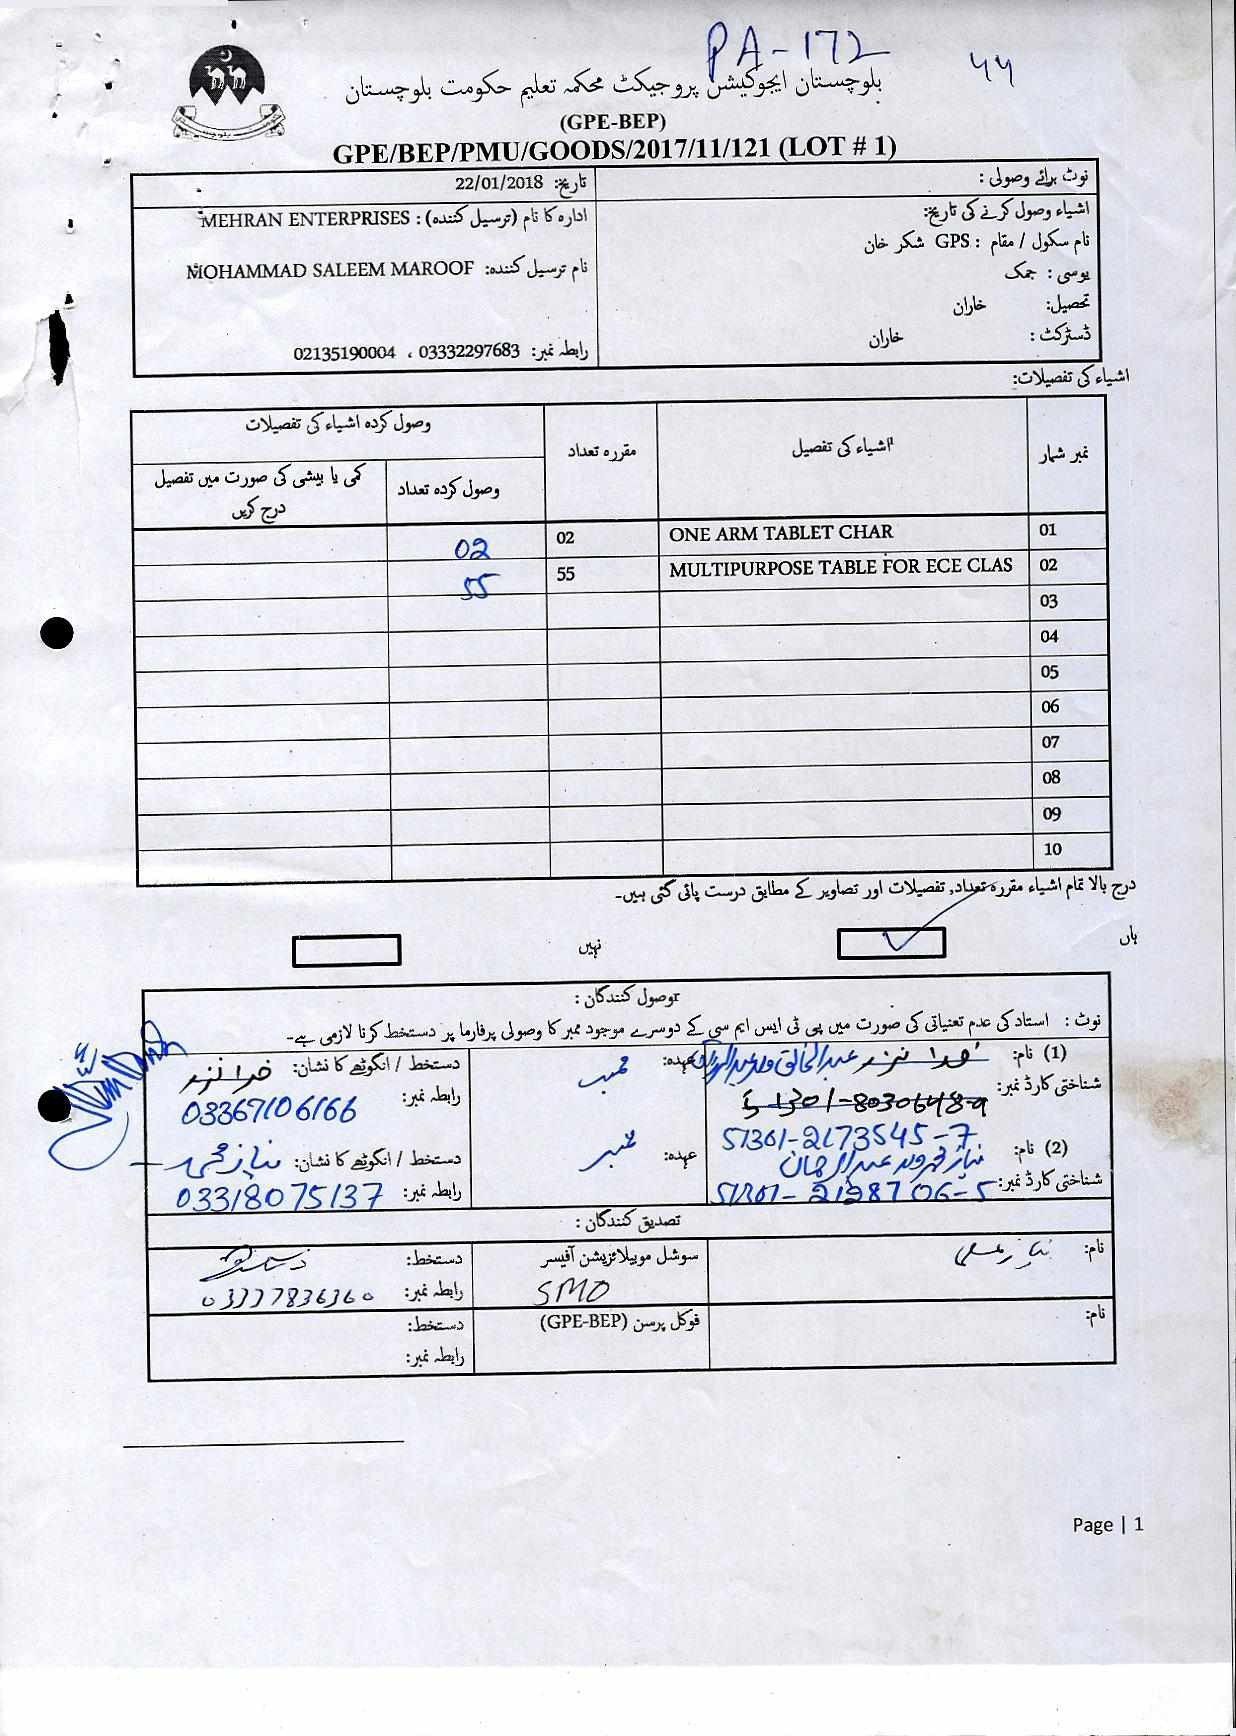 PA-172
44
بلوچستان ایجوکیشن پروجیکٹ محکمہ تعلیم حکومت بلوچستان
(GPE-BEP)
GPE/BEP/PMU/GOODS/2017/11/121 (LOT # 1)
نوٹ برائے وصولی :
تاریخ: 22/01/2018
اشیاء وصول کرنے کی تاریخ:
نام سکول / مقام : GPS شکر خان
یوسی : جمک
تحصیل: خاران
ڈسٹرکٹ : خاران
ادارہ کا نام (ترسیل کنندہ) : MEHRAN ENTERPRISES
نام ترسیل کنندہ: MOHAMMAD SALEEM MAROOF
رابطہ نمبر: 03332297683 ، 02135190004
اشیاء کی تفصیلات:
نمبر شمار اشیاء کی تفصیل مقررہ تعداد وصول کردہ اشیاء کی تفصیلات
وصول کردہ تعداد کمی یا بیشی کی صورت میں تفصیل درج کریں
01 ONE ARM TABLET CHAR 02 02
02 MULTIPURPOSE TABLE FOR ECE CLAS 55 55
03
04
05
06
07
08
09
10
درج بالا تمام اشیاء مقررہ تعداد, تفصیلات اور تصاویر کے مطابق درست پائی گئی ہیں۔
ہاں ✓ نہیں
وصول کنندگان :
نوٹ : استاد کی عدم تعنیاتی کی صورت میں پی ٹی ایس ایم سی کے دوسرے موجود ممبر کا وصولی پرفارما پر دستخط کرنا لازمی ہے۔
(1) نام: عبدالخالق ولد عہدہ: ممبر دستخط / انگوٹھے کا نشان:
شناختی کارڈ نمبر: 51301-8030648-9 رابطہ نمبر: 03367106166
51301-2173545-7
(2) نام: نیاز محمد ولد عبدالرحمان عہدہ: ممبر دستخط / انگوٹھے کا نشان: نیاز محمد
شناختی کارڈ نمبر: 51301-2128706-5 رابطہ نمبر: 03318075137
تصدیق کنندگان :
نام: سوشل موبیلائزیشن آفیسر دستخط:
SMO رابطہ نمبر: 03337836360
نام: فوکل پرسن (GPE-BEP) دستخط:
رابطہ نمبر:
Page | 1